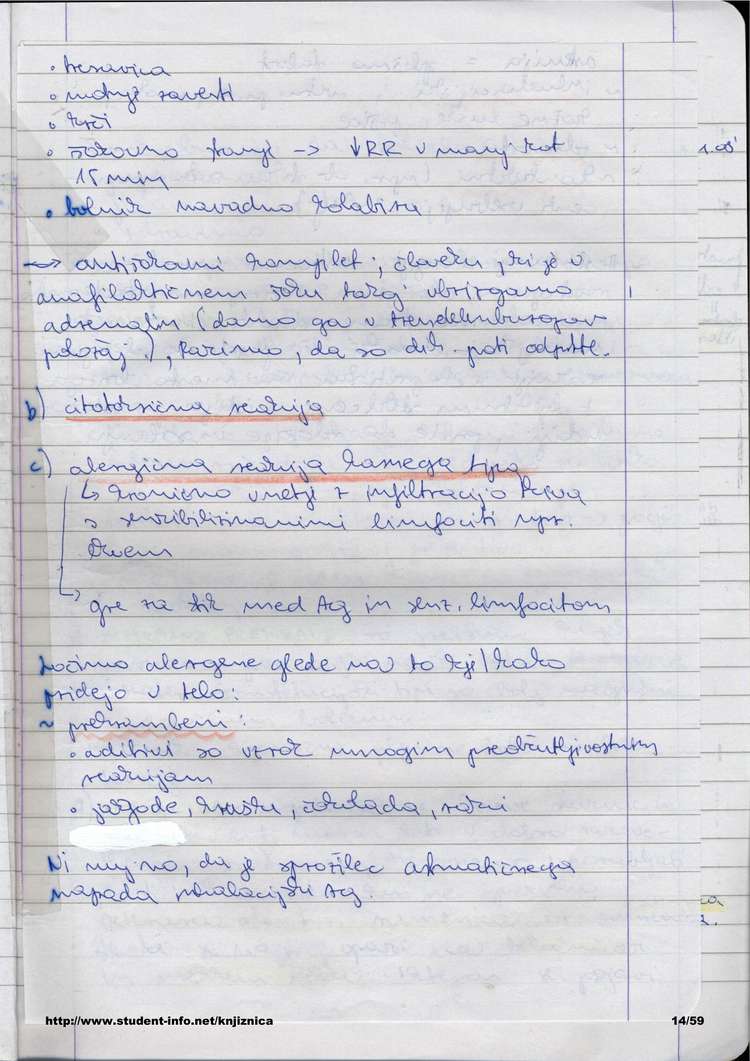 • tresavica
• motnje zavesti
• krči
• šokovno stanje -> ↓RR v manj kot
15 min
• bolnik navadno kolabira
-> antišokovni komplet; človeku, ki je v
anafilaktičnem šoku takoj vbrizgamo
adrenalin (damo ga v trendelenburgov
položaj), pazimo, da so dih. poti odprte.
b) citotoksična reakcija
c) alergična reakcija kasnega tipa
↳ kronično vnetje z infiltracijo tkiva
s senzibiliziranimi limfociti npr.
↳ gre za stik med Ag in senz. limfocitom
Ločimo alergene glede na to kje/kako
pridejo v telo:
~ prehrambeni:
• aditivi so vzrok mnogim preobčutljivostnim
reakcijam
• jagode, kruška, čokolada,
Ni nujno, da je sprožilec astmatičnega
napada inhalacijski Ag.
http://www.student-info.net/knjiznica
14/59